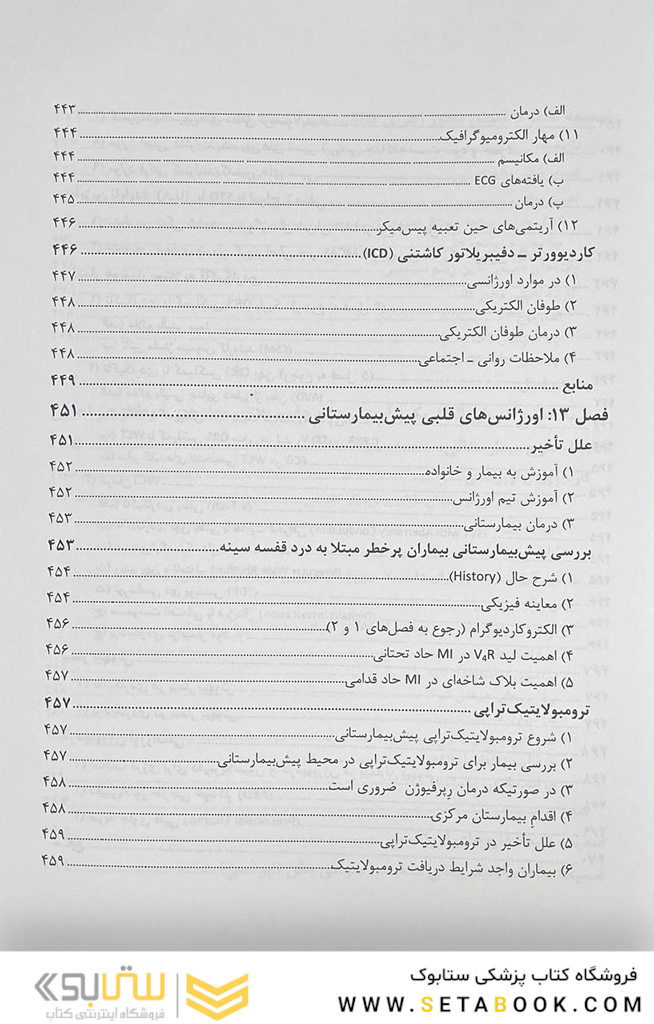 الف) درمان ........ ۴۴۳
۱۱) مهار الکترومیوگرافیک ........ ۴۴۴
الف) مکانیسم ........ ۴۴۴
ب) یافته‌های ECG ........ ۴۴۴
پ) درمان ........ ۴۴۵
۱۲) آریتمی‌های حین تعبیه پیس‌میکر ........ ۴۴۶
کاردیوورتر – دفیبریلاتور کاشتنی (ICD) ........ ۴۴۶
۱) در موارد اورژانسی ........ ۴۴۷
۲) طوفان الکتریکی ........ ۴۴۸
۳) درمان طوفان الکتریکی ........ ۴۴۸
۴) ملاحظات روانی – اجتماعی ........ ۴۴۸
منابع ........ ۴۴۹
فصل ۱۳: اورژانس‌های قلبی پیش‌بیمارستانی ........ ۴۵۱
علل تأخیر ........ ۴۵۱
۱) آموزش به بیمار و خانواده ........ ۴۵۲
۲) آموزش تیم اورژانس ........ ۴۵۲
۳) درمان بیمارستانی ........ ۴۵۳
بررسی پیش‌بیمارستانی بیماران پرخطر مبتلا به درد قفسه سینه ........ ۴۵۳
۱) شرح حال (History) ........ ۴۵۴
۲) معاینه فیزیکی ........ ۴۵۴
۳) الکتروکاردیوگرام (رجوع به فصل‌های ۱ و ۲) ........ ۴۵۶
۴) اهمیت لید V₄R در MI حاد تحتانی ........ ۴۵۶
۵) اهمیت بلاک شاخه‌ای در MI حاد قدامی ........ ۴۵۷
ترومبولایتیک‌تراپی ........ ۴۵۷
۱) شروع ترومبولایتیک‌تراپی پیش‌بیمارستانی ........ ۴۵۷
۲) بررسی بیمار برای ترومبولایتیک‌تراپی در محیط پیش‌بیمارستانی ........ ۴۵۷
۳) در صورتیکه درمان رِپرفیوژن ضروری است ........ ۴۵۸
۴) اقدامِ بیمارستان مرکزی ........ ۴۵۸
۵) علل تأخیر در ترومبولایتیک‌تراپی ........ ۴۵۹
۶) بیماران واجد شرایط دریافت ترومبولایتیک ........ ۴۵۹
فروشگاه کتاب پزشکی ستابوک
WWW.SETABOOK.COM
ستابوک
فروشگاه اینترنتی کتاب